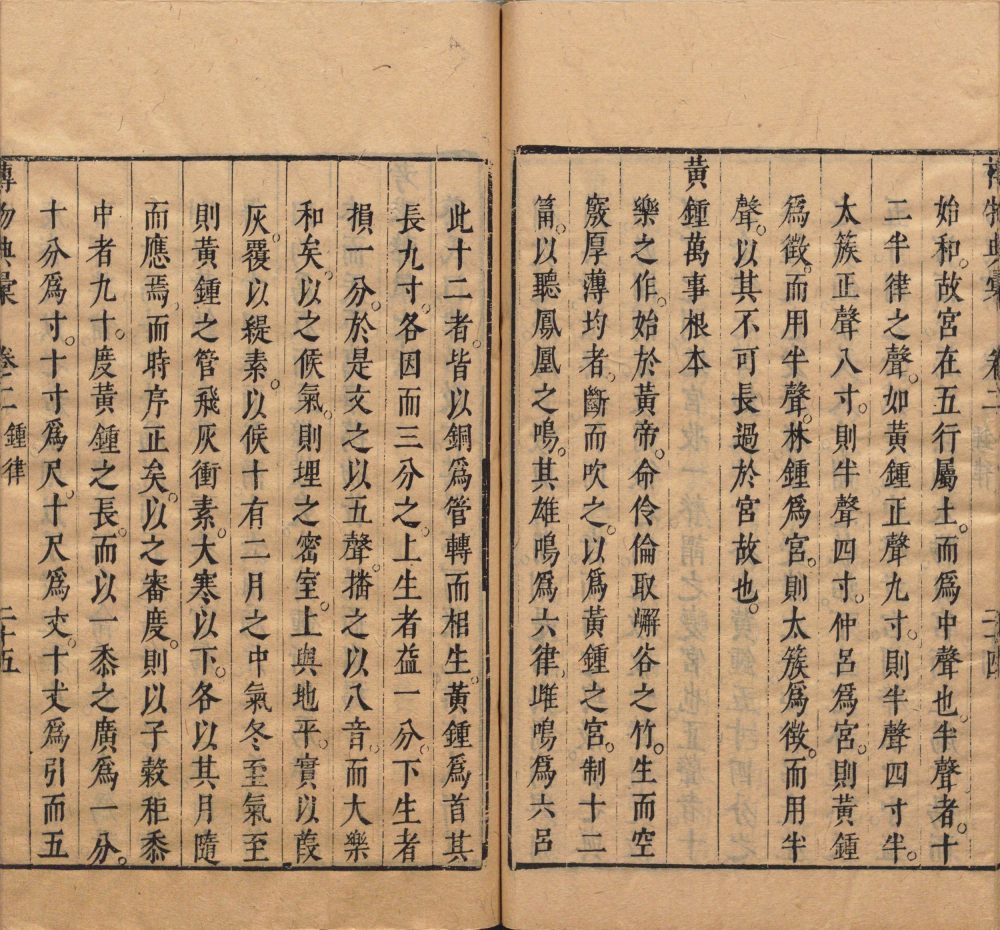 博物典彙 卷二 二十四
始和。故宮在五行屬土。而爲中聲也。半聲者。十
二半律之聲。如黃鍾正聲九寸。則半聲四寸半。
太簇正聲八寸。則半聲四寸。仲呂爲宮。則黃鍾
爲徵。而用半聲。林鍾爲宮。則太簇爲徵。而用半
聲。以其不可長過於宮故也。
黃鍾萬事根本
樂之作。始於黃帝。命伶倫取嶰谷之竹。生而空
竅厚薄均者。斷而吹之。以爲黃鍾之宮。制十二
筩。以聽鳳凰之鳴。其雄鳴爲六律。雌鳴爲六呂
此十二者。皆以銅爲管轉而相生。黃鍾爲首其
長九寸。各因而三分之。上生者益一分。下生者
損一分。於是文之以五聲。播之以八音。而大樂
和矣。以之候氣。則埋之密室。上與地平。實以葭
灰。覆以緹素。以候十有二月之中氣冬至氣至
則黃鍾之管飛灰衝素。大寒以下。各以其月隨
而應焉。而時序正矣。以之審度。則以子穀秬黍
中者九十。度黃鍾之長。而以一黍之廣爲一分。
十分爲寸。十寸爲尺。十尺爲丈。十丈爲引而五
博物典彙 卷二 鍾律 二十五